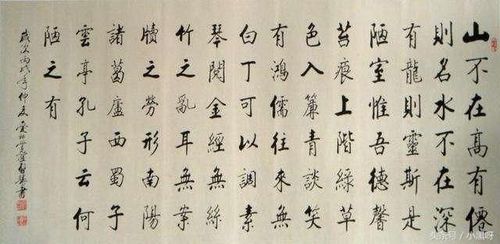 山不在高有僊
則名水不在深
有龍則靈斯是
陋室惟吾德馨
苔痕上階綠草
色入簾青談笑
有鴻儒往來無
白丁可以調素
琴閱金經無絲
竹之亂耳無案
牘之勞形南陽
諸葛廬西蜀子
雲亭孔子云何
陋之有
歲次丙戌年仲夏書
头条号